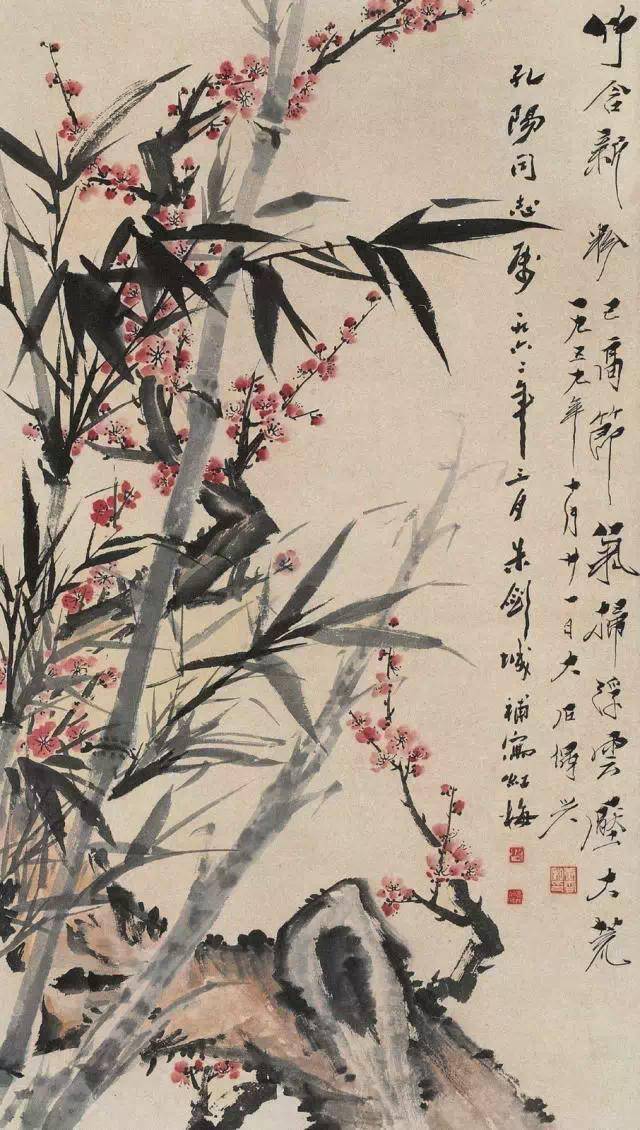 竹含新粉已高節氣掃浮雲壓大荒
一九五九年十月廿一日大石
孔陽同志属一九六二年三月朱劍城補寫紅梅